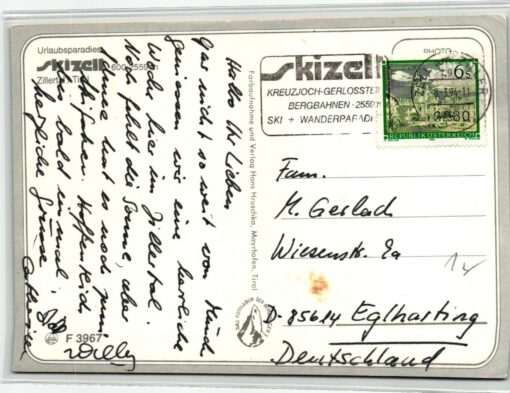 Urlaubsparadies
skizell 600-2559m
Zillertal Tirol
Hallo Ihr Lieben
Gar nicht so weit von Euch
geniessen wir eine herrliche
Woche hier im Zillertal.
Noch fehlt die Sonne, aber
Schnee hat es noch zum
Skifahren. Hoffentlich
bis bald einmal.
herzliche Grüsse
Willy
F 3967
Farbaufnahme und Verlag Hans Hruschka, Mayrhofen, Tirol
PHOTO
skizell
KREUZJOCH-GERLOSSTEIN
BERGBAHNEN · 2559m
SKI + WANDERPARADI
6 S
REPUBLIK ÖSTERREICH
Fam.
M. Gerlach
Wiesenstr. 2a
14
D-85614 Eglharting
Deutschland